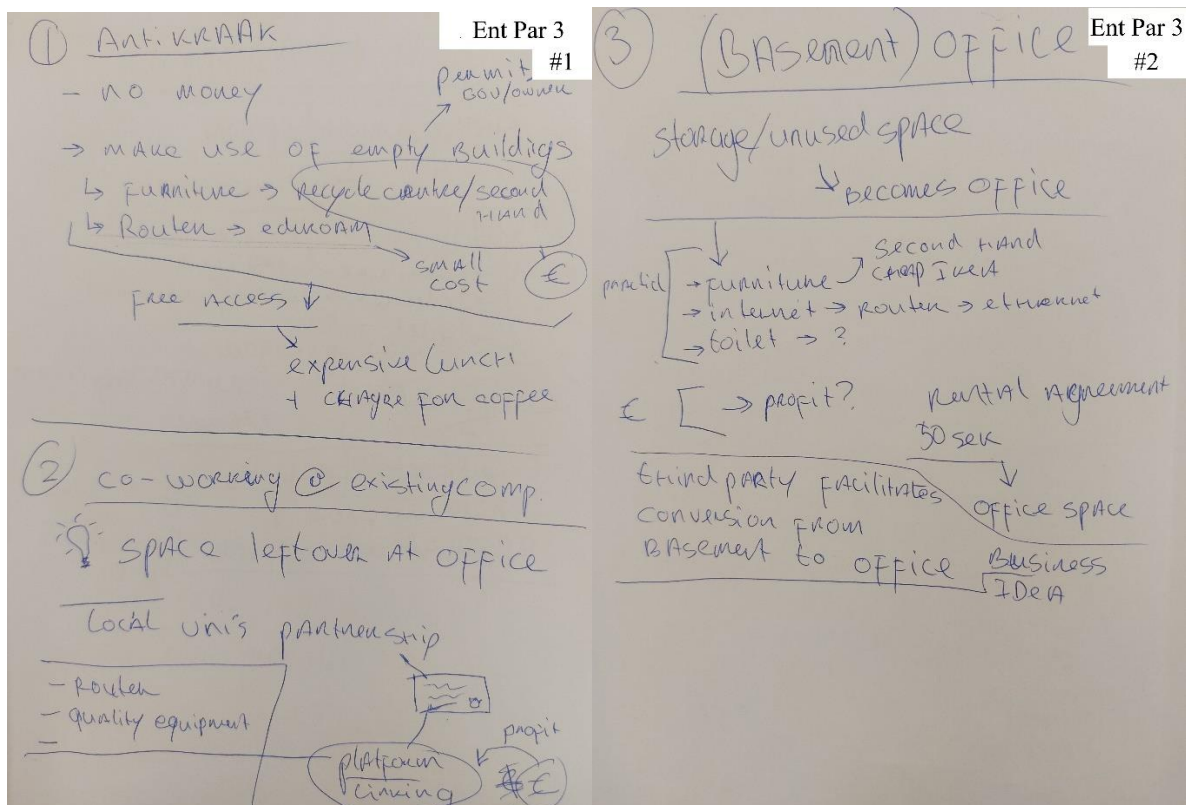 ① AntiKRAAK
Ent Par 3
#1
- no money
permit
GOV/OWNER
→ MAKE USE OF empty Buildings
↳ FURNITURE → Recycle centre/second
HAND
↳ Router → eduroam
SMALL
COST
€
FREE ACCESS
expensive LUNCH
+ CHARGE FOR COFFEE
② CO-WORKING @ existing comp.
SPACE leftover At OFFICE
LOCAL Uni's PARTNERSHIP
- ROUTER
- quality equipment
-
profit
PLATFORM
Linking
€
③ (BAsement) OFFICE
Ent Par 3
#2
storage/unused space
↘ Becomes OFFICE
second HAND
CHEAP IKEA
→ FURNITURE
→ internet → Router → etHernet
→ toilet → ?
€ [ → profit?
Rental Agreement
50 sek
OFFICE SPACE
tHird pARTY FACiLitAtes
conversion FROM
BAsement to OFFICE
Business
IDeA